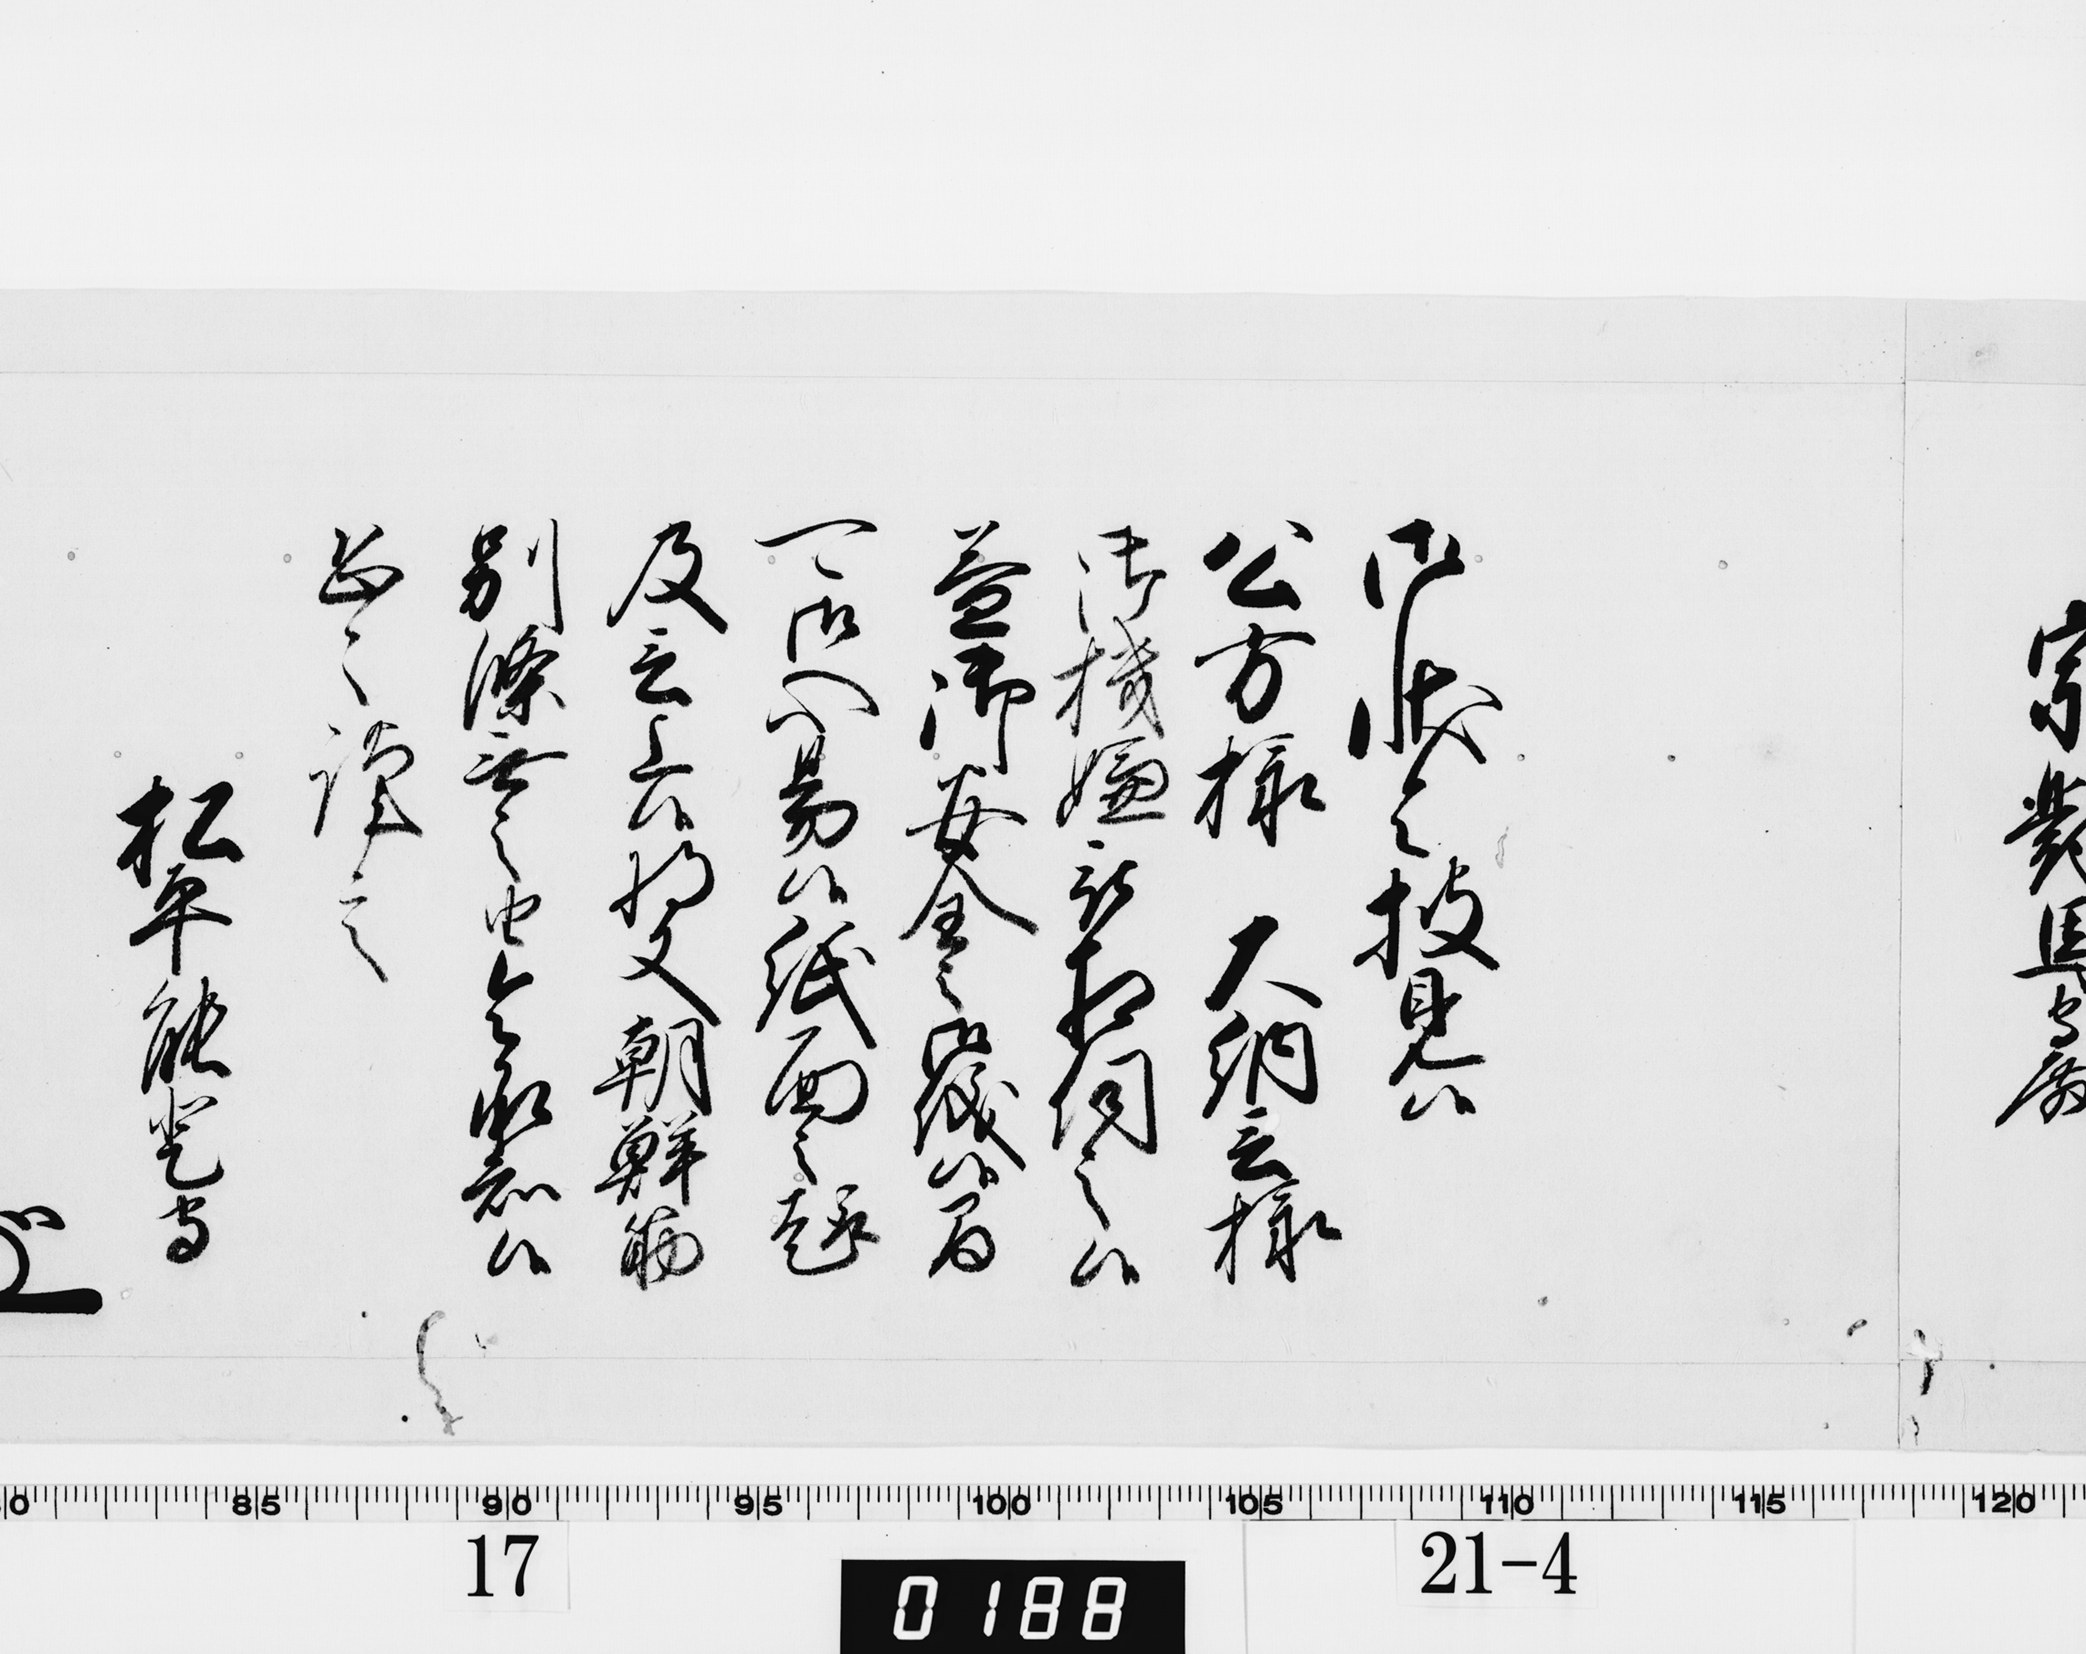 宗對馬守殿
御状令披見候
公方様 大納言様
御機嫌被相伺之候
益御安全之御儀候間
可御心易候紙面之趣
及言上候将又朝鮮筋
別條無之由令承知候
恐々謹言
松平能登守
85 90 95 100 105 110 115 120
17
0188
21-4